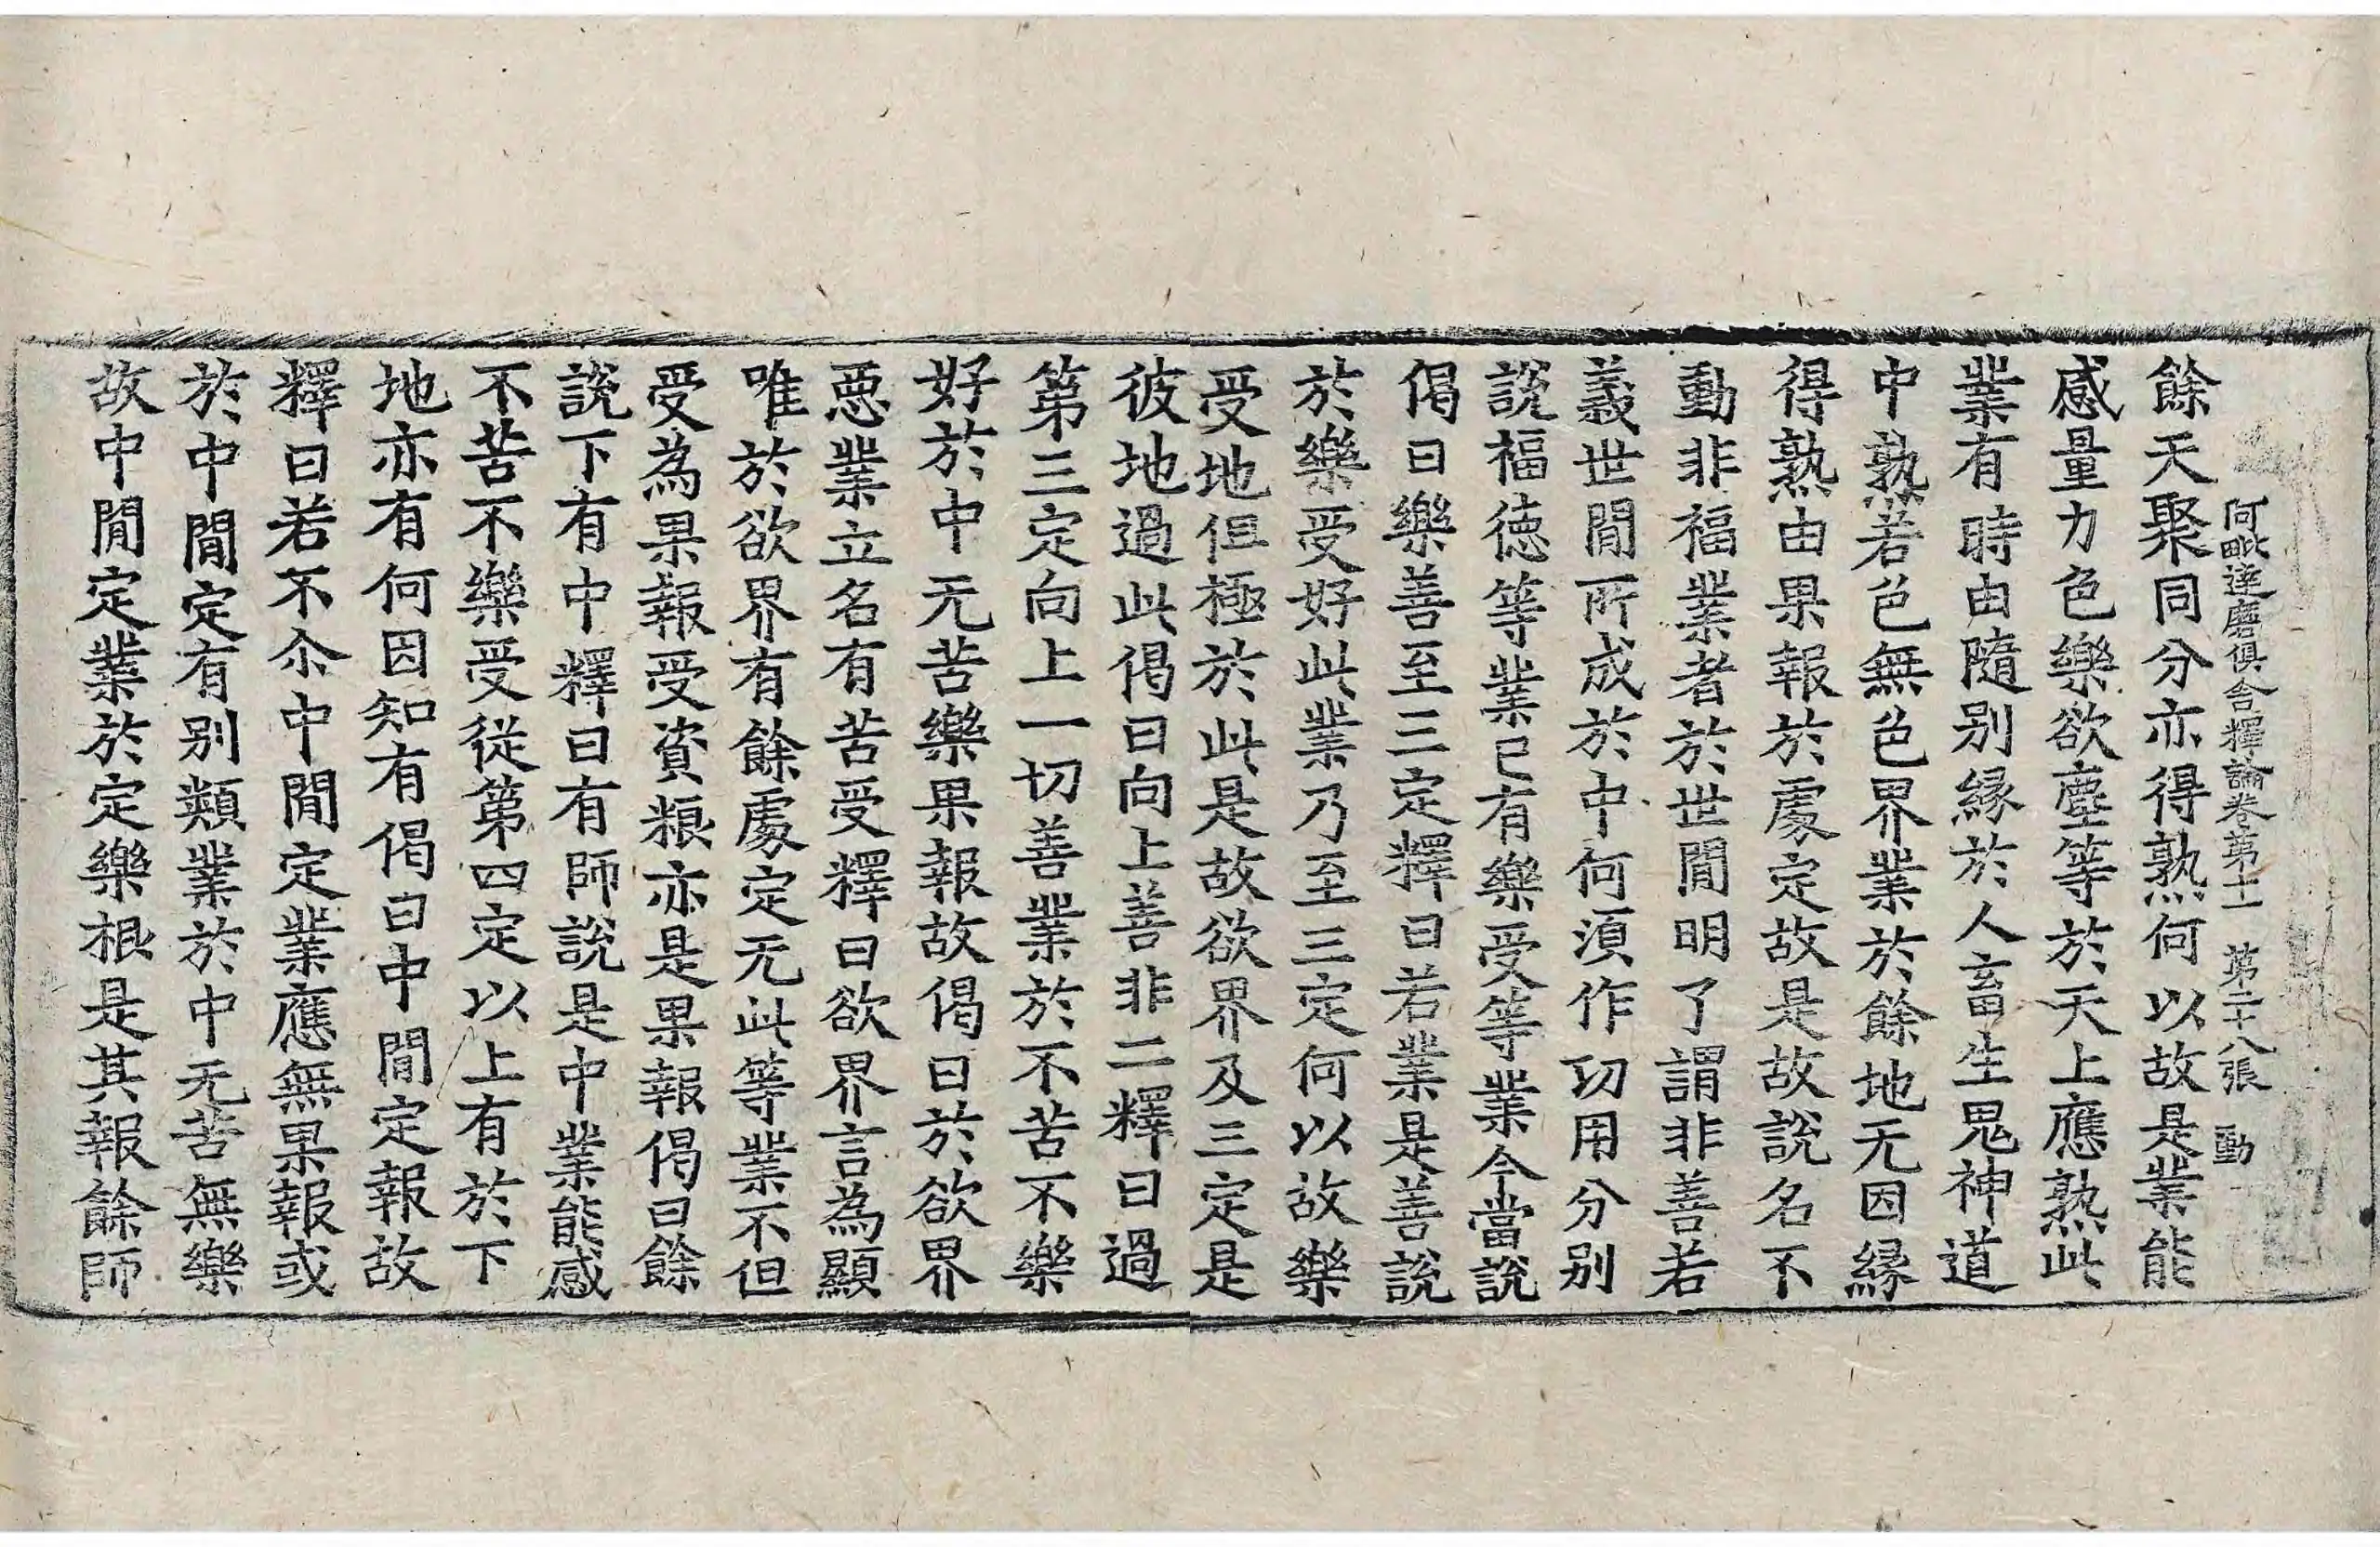 阿毗達磨俱舍釋論卷第十二　第二十八張　動
餘天聚同分亦得熟何以故是業能
感量力色樂欲塵等於天上應熟此
業有時由隨别縁於人畜生鬼神道
中熟若色無色界業於餘地无因縁
得熟由果報於處定故是故說名不
動非福業者於世閒明了謂非善若
義世閒所成於中何須作功用分别
說福德等業已有樂受等業今當說
偈曰樂善至三定釋曰若業是善說
於樂受好此業乃至三定何以故樂
受地但極於此是故欲界及三定是
彼地過此偈曰向上善非二釋曰過
第三定向上一切善業於不苦不樂
好於中无苦樂果報故偈曰於欲界
惡業立名有苦受釋曰欲界言為顯
唯於欲界有餘處定无此等業不但
受為果報受資粮亦是果報偈曰餘
說下有中釋曰有師說是中業能感
不苦不樂受從第四定以上有於下
地亦有何因知有偈曰中閒定報故
釋曰若不尒中閒定業應無果報或
於中閒定有别類業於中无苦無樂
故中閒定業於定樂根是其報餘師